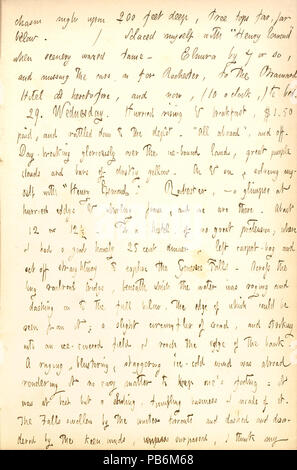 chasm nigh upon 200 feet deep, tree tops far, far
below. / Solaced myself with "Henry Esmond"
when scenery waxed tame. Elmira by 4 or so,
and missing the cars, on for Rochester, to the Brainard
Hotel as heretofore, and now, (10 o'clock,) to bed.
29. Wednesday. Hurried rising & breakfast, $1.50
paid, and rattled down to the depot. "All aboard", and off.
Day-breaking gloriously over the ice-bound lands, great purple
clouds and bars of dusky yellow. On & on, solacing my-
self with "Henry Esmond." Rochester, — a glimpse at
hurried edge & whirling foam, and we are there. About
12 or 12½. To a hotel of no great pretension, where
I had a good, homely 25 cent dinner, left carpet-bag and
set off straightway to explore the Genesee Falls. Across the
big railroad bridge, beneath which the water was raging and
dashing on to the fall below, the edge of which could be
seen from it; a slight circumflex of road, and
into an ice-covered field I reach the edge of the bank.
A raging, blustering, staggering ice-cold wind was abroad
rendering it no easy matter to keep one's footing; it
was at best but a sliding, tumbling business I made of it.
The Falls swollen by the winter torrents and dashed and
by the keen winds, surpassed, I think my
alamy
Image ID: PB6M68
www.alamy.com